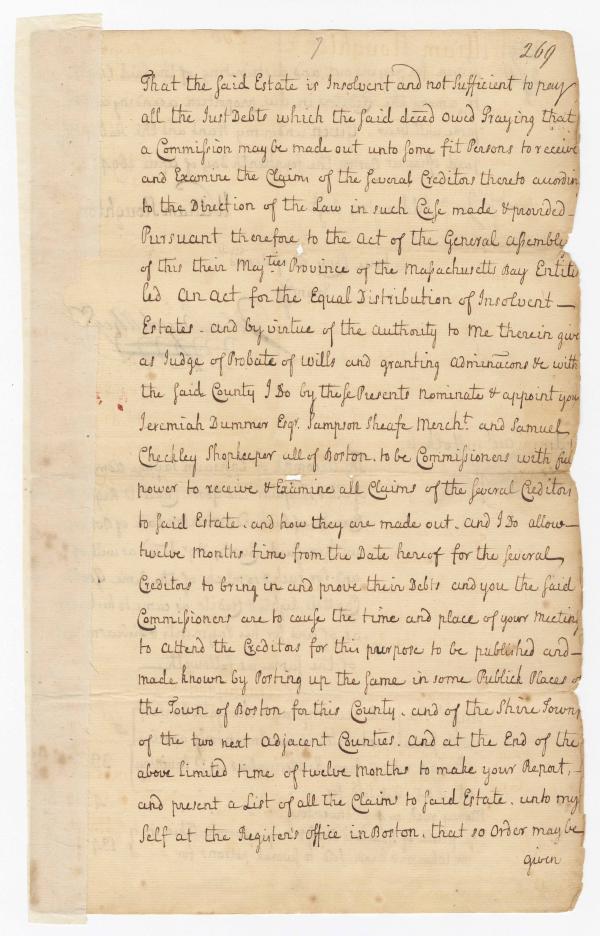 7 269
That the said Estate is Insolvent and not Sufficient to pay
all the Just Debts which the said deced Owed Praying that
a Commission may be made out unto some fit Persons to receive
and Examine the Claims of the several Creditors thereto accordin
to the Direction of the Law in such Case made & provided -
Pursuant therefore to the Act of the General assemble
of this their Majties Province of the Massachusetts Bay Entit
led An Act for the Equal Distribution of Insolvent —
Estates. and by virtue of the authority to Me therein give
as Judge of Probate of Wills and granting Adminacons &c with
the said County I Do by these Presents nominate & appoint you
Jeremiah Dummer Esqr. Sampson Sheafe Mercht. and Samuel
Checkley Shopkeeper all of Boston, to be Commissioners with ful
power to receive & Examine all Claims of the several Creditors
to said Estate. and how they are made out. and I Do allow —
twelve Months time from the Date hereof for the several
Creditors to bring in and prove their Debts and you the said
Commissioners are to cause the time and place of your Meeting
to attend the Creditors for this purpose to be published and —
made known by Posting up the same in some Publick Places of
the Town of Boston for this County. and of the Shire Towns
of the two next Adjacent Counties. And at the End of the
above limited time of twelve Months to make your Report, —
and present a List of all the Claims to said Estate. unto my
Self at the Register's office in Boston, that so Order may be
given